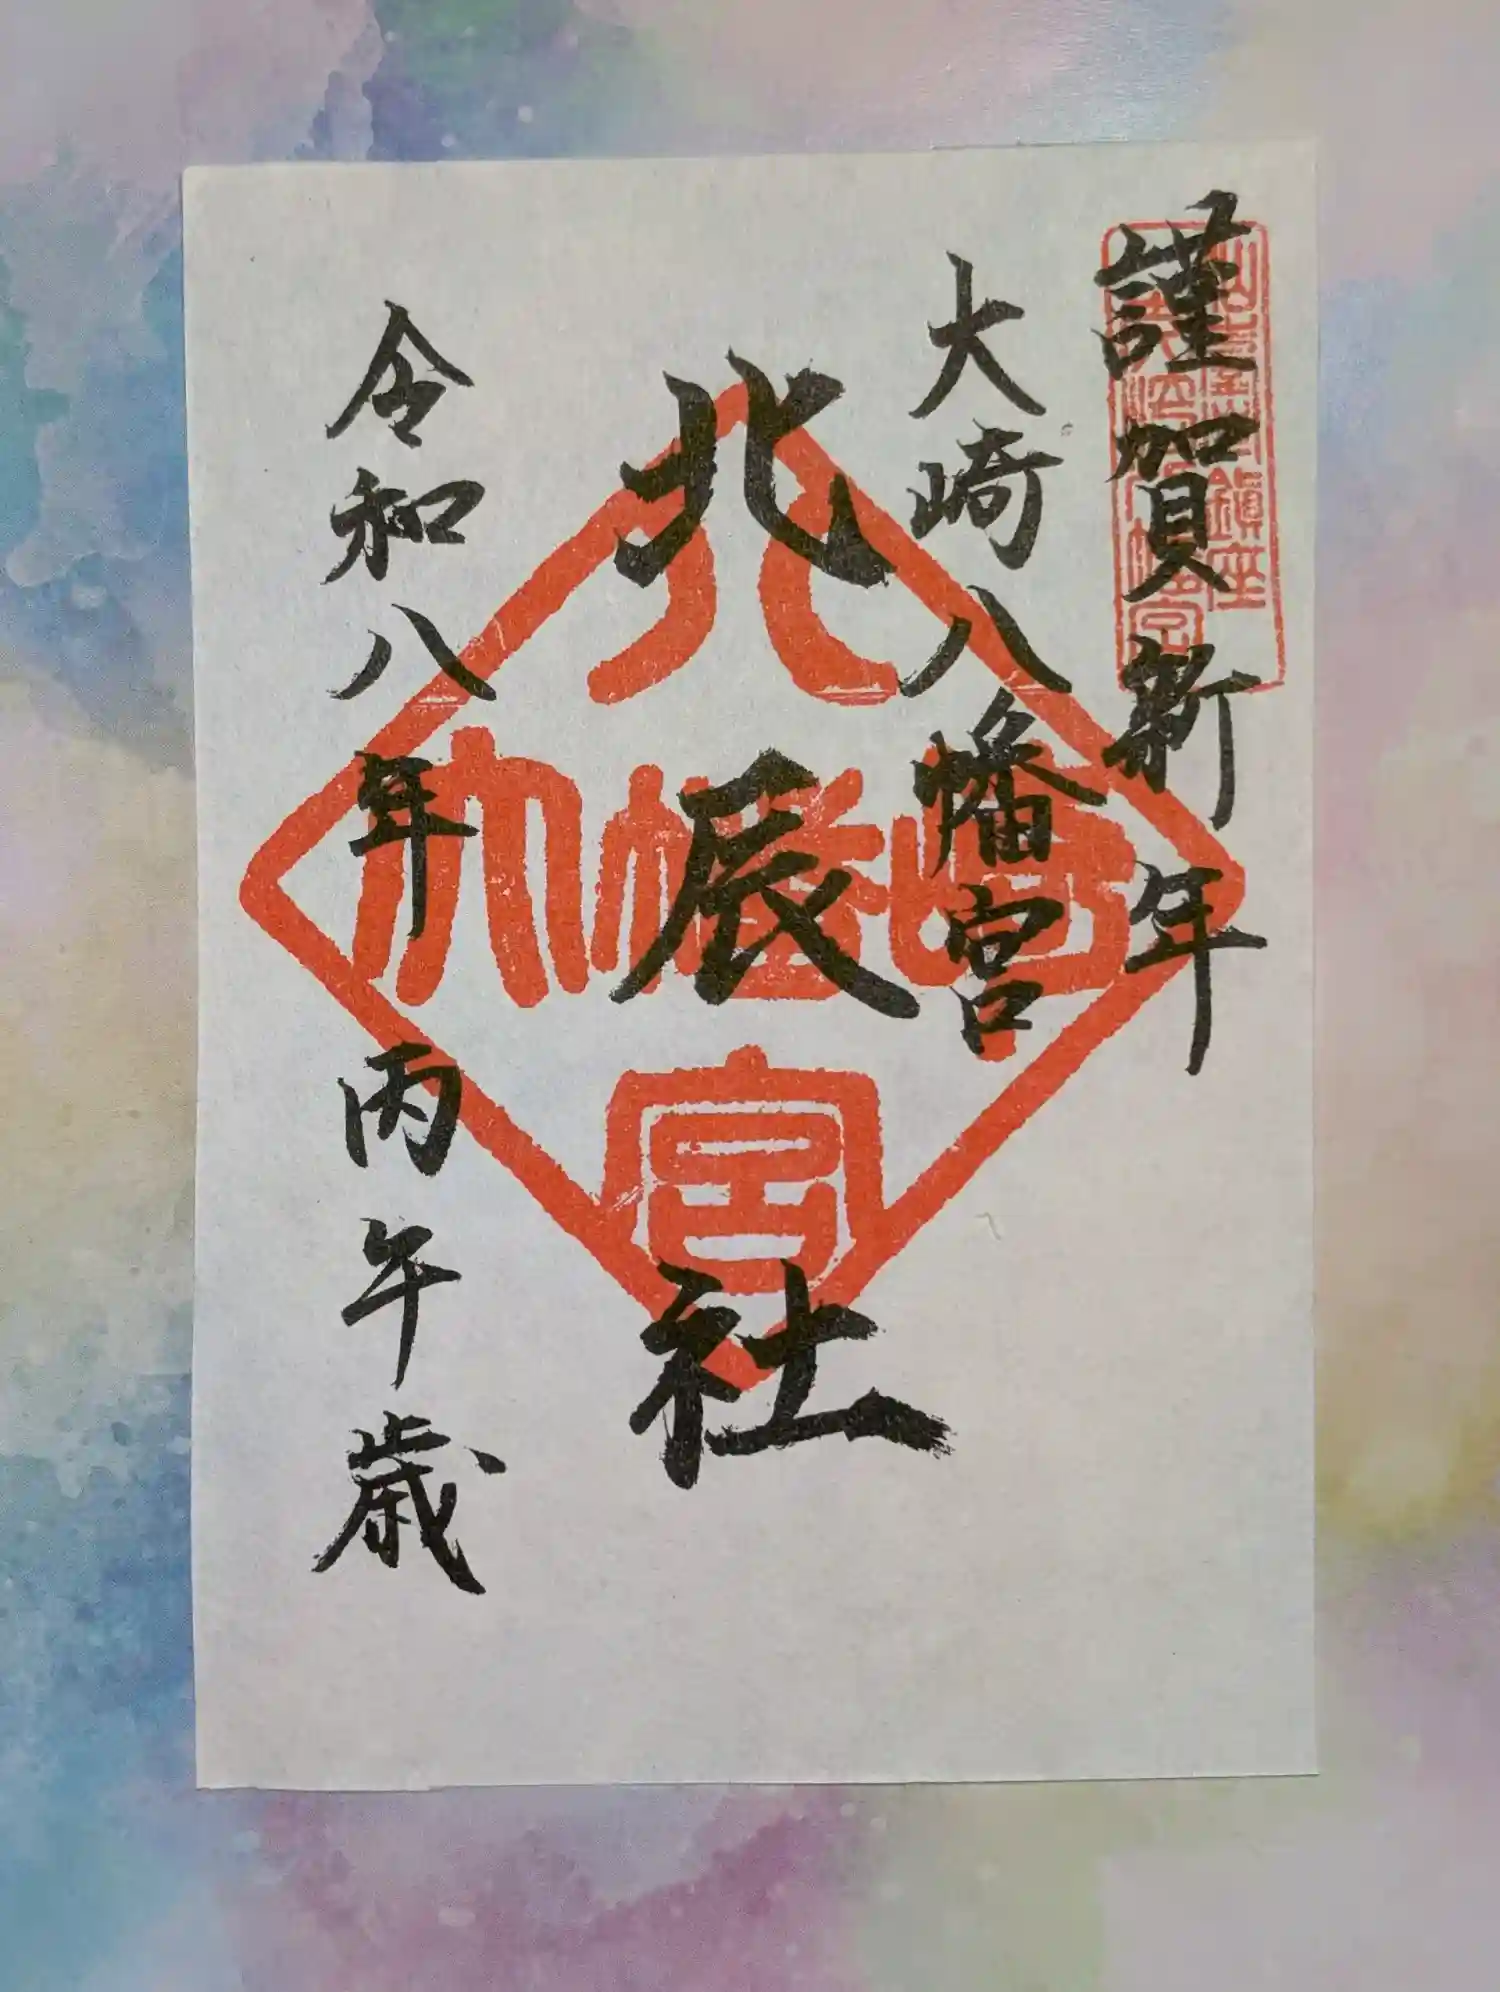 謹賀新年
大崎八幡宮
北辰社
令和八年丙午歳